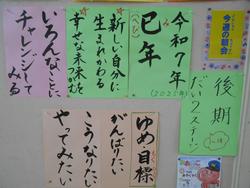 令和７年
（2025年）
巳年
（へび）
新しい自分に
生まれかわる
幸せな未来をつかむ
いろんなことに
チャレンジして
みる
ゆめ 目標
がんばりたい
こうなりたい
やってみたい
今週の朝会
後期
だい２ステージ